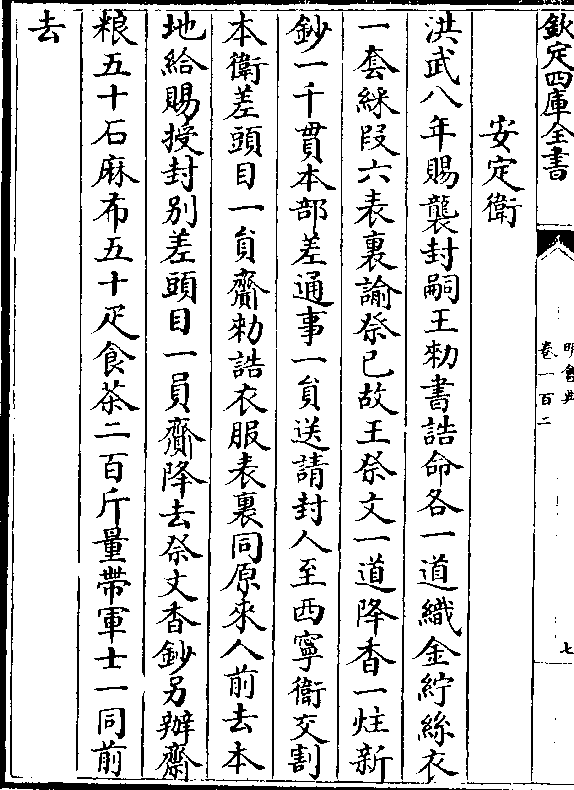 欽定四庫全書
明會典
卷一百二
七
安定衛
洪武八年賜襲封嗣王勅書誥命各一道織金紵絲衣
一套綵段六表裏諭祭已故王祭文一道降香一炷新
鈔一千貫本部差通事一貟送請封人至西寧衞交割
本衛差頭目一貟齎勅誥衣服表裏同原來人前去本
地給賜授封别差頭目一員齎降去祭文香鈔另辦齋
粮五十石麻布五十疋食茶二百斤量帶軍士一同前
去